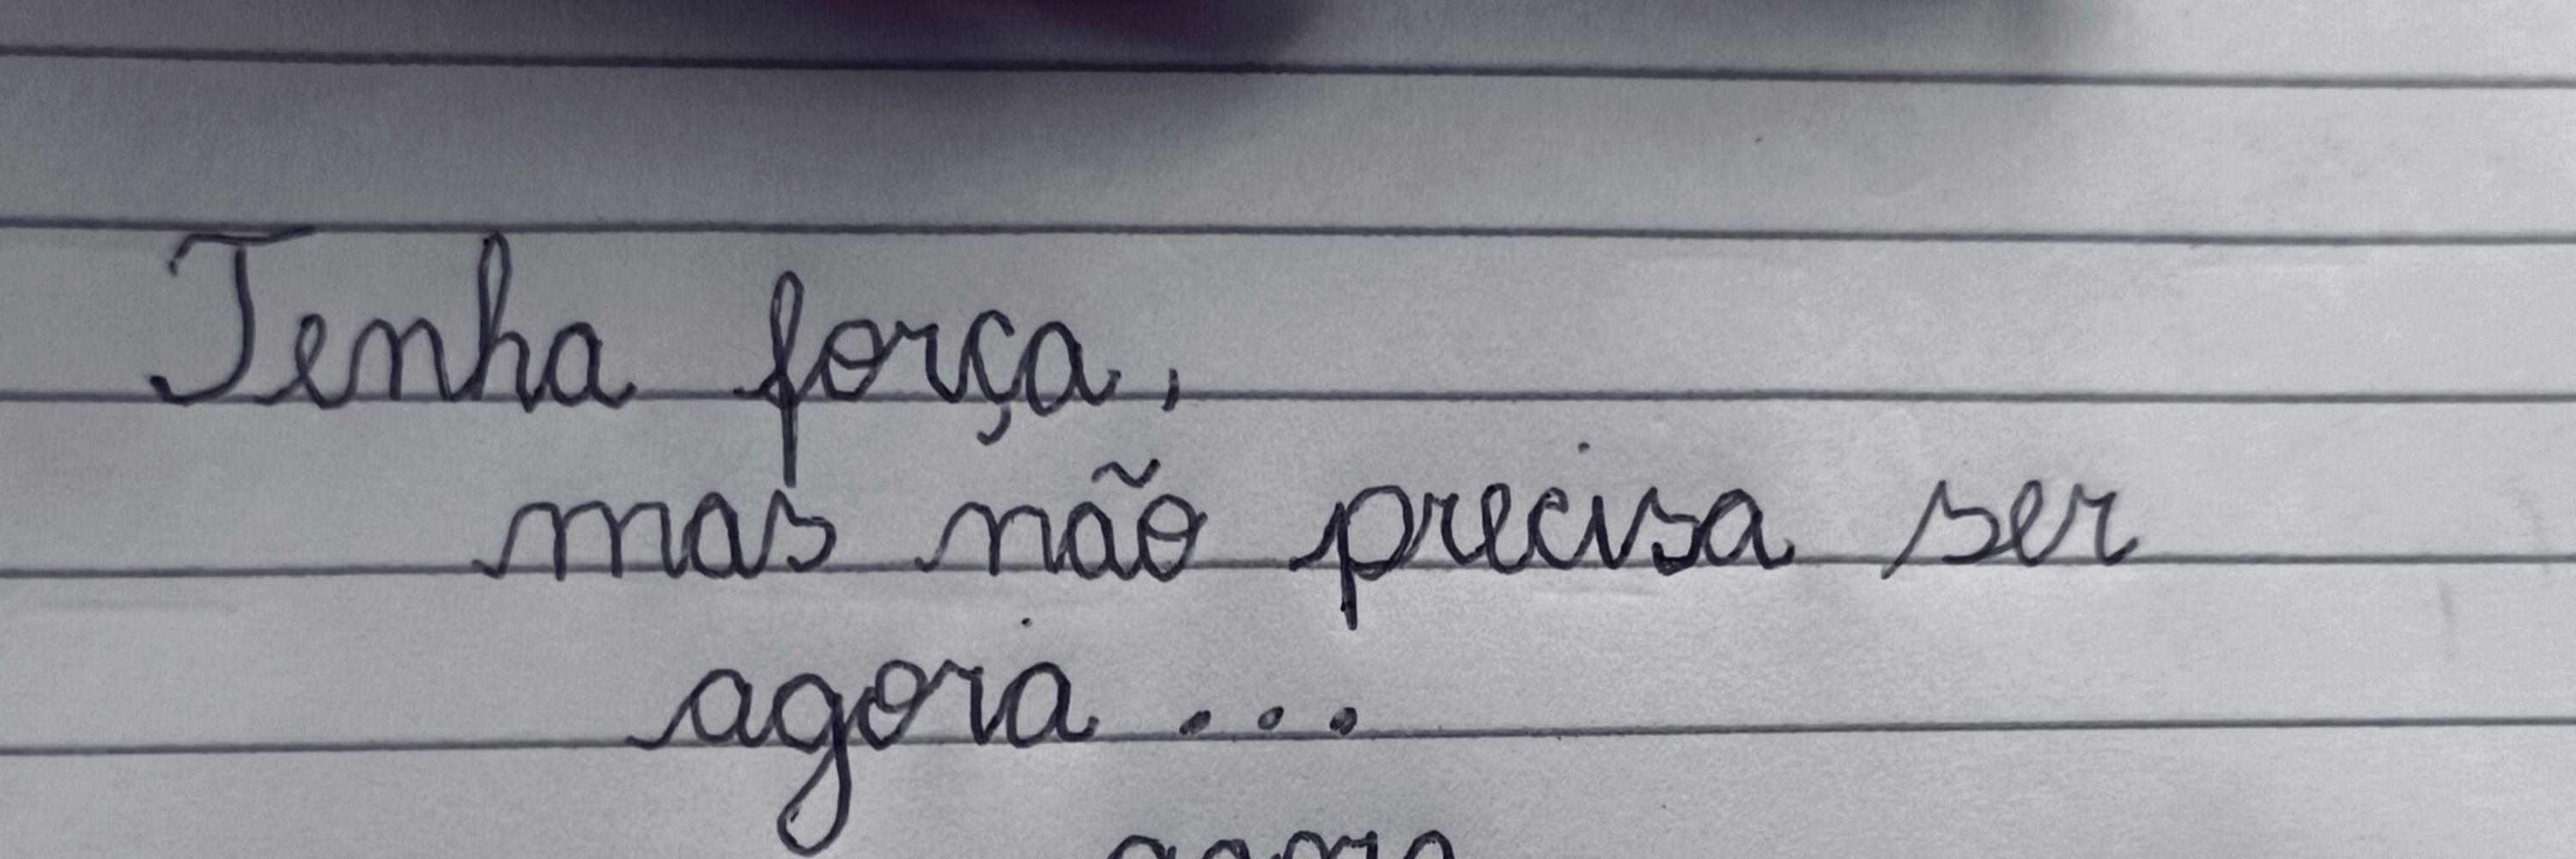 Tenha força,
mas não precisa ser
agora...